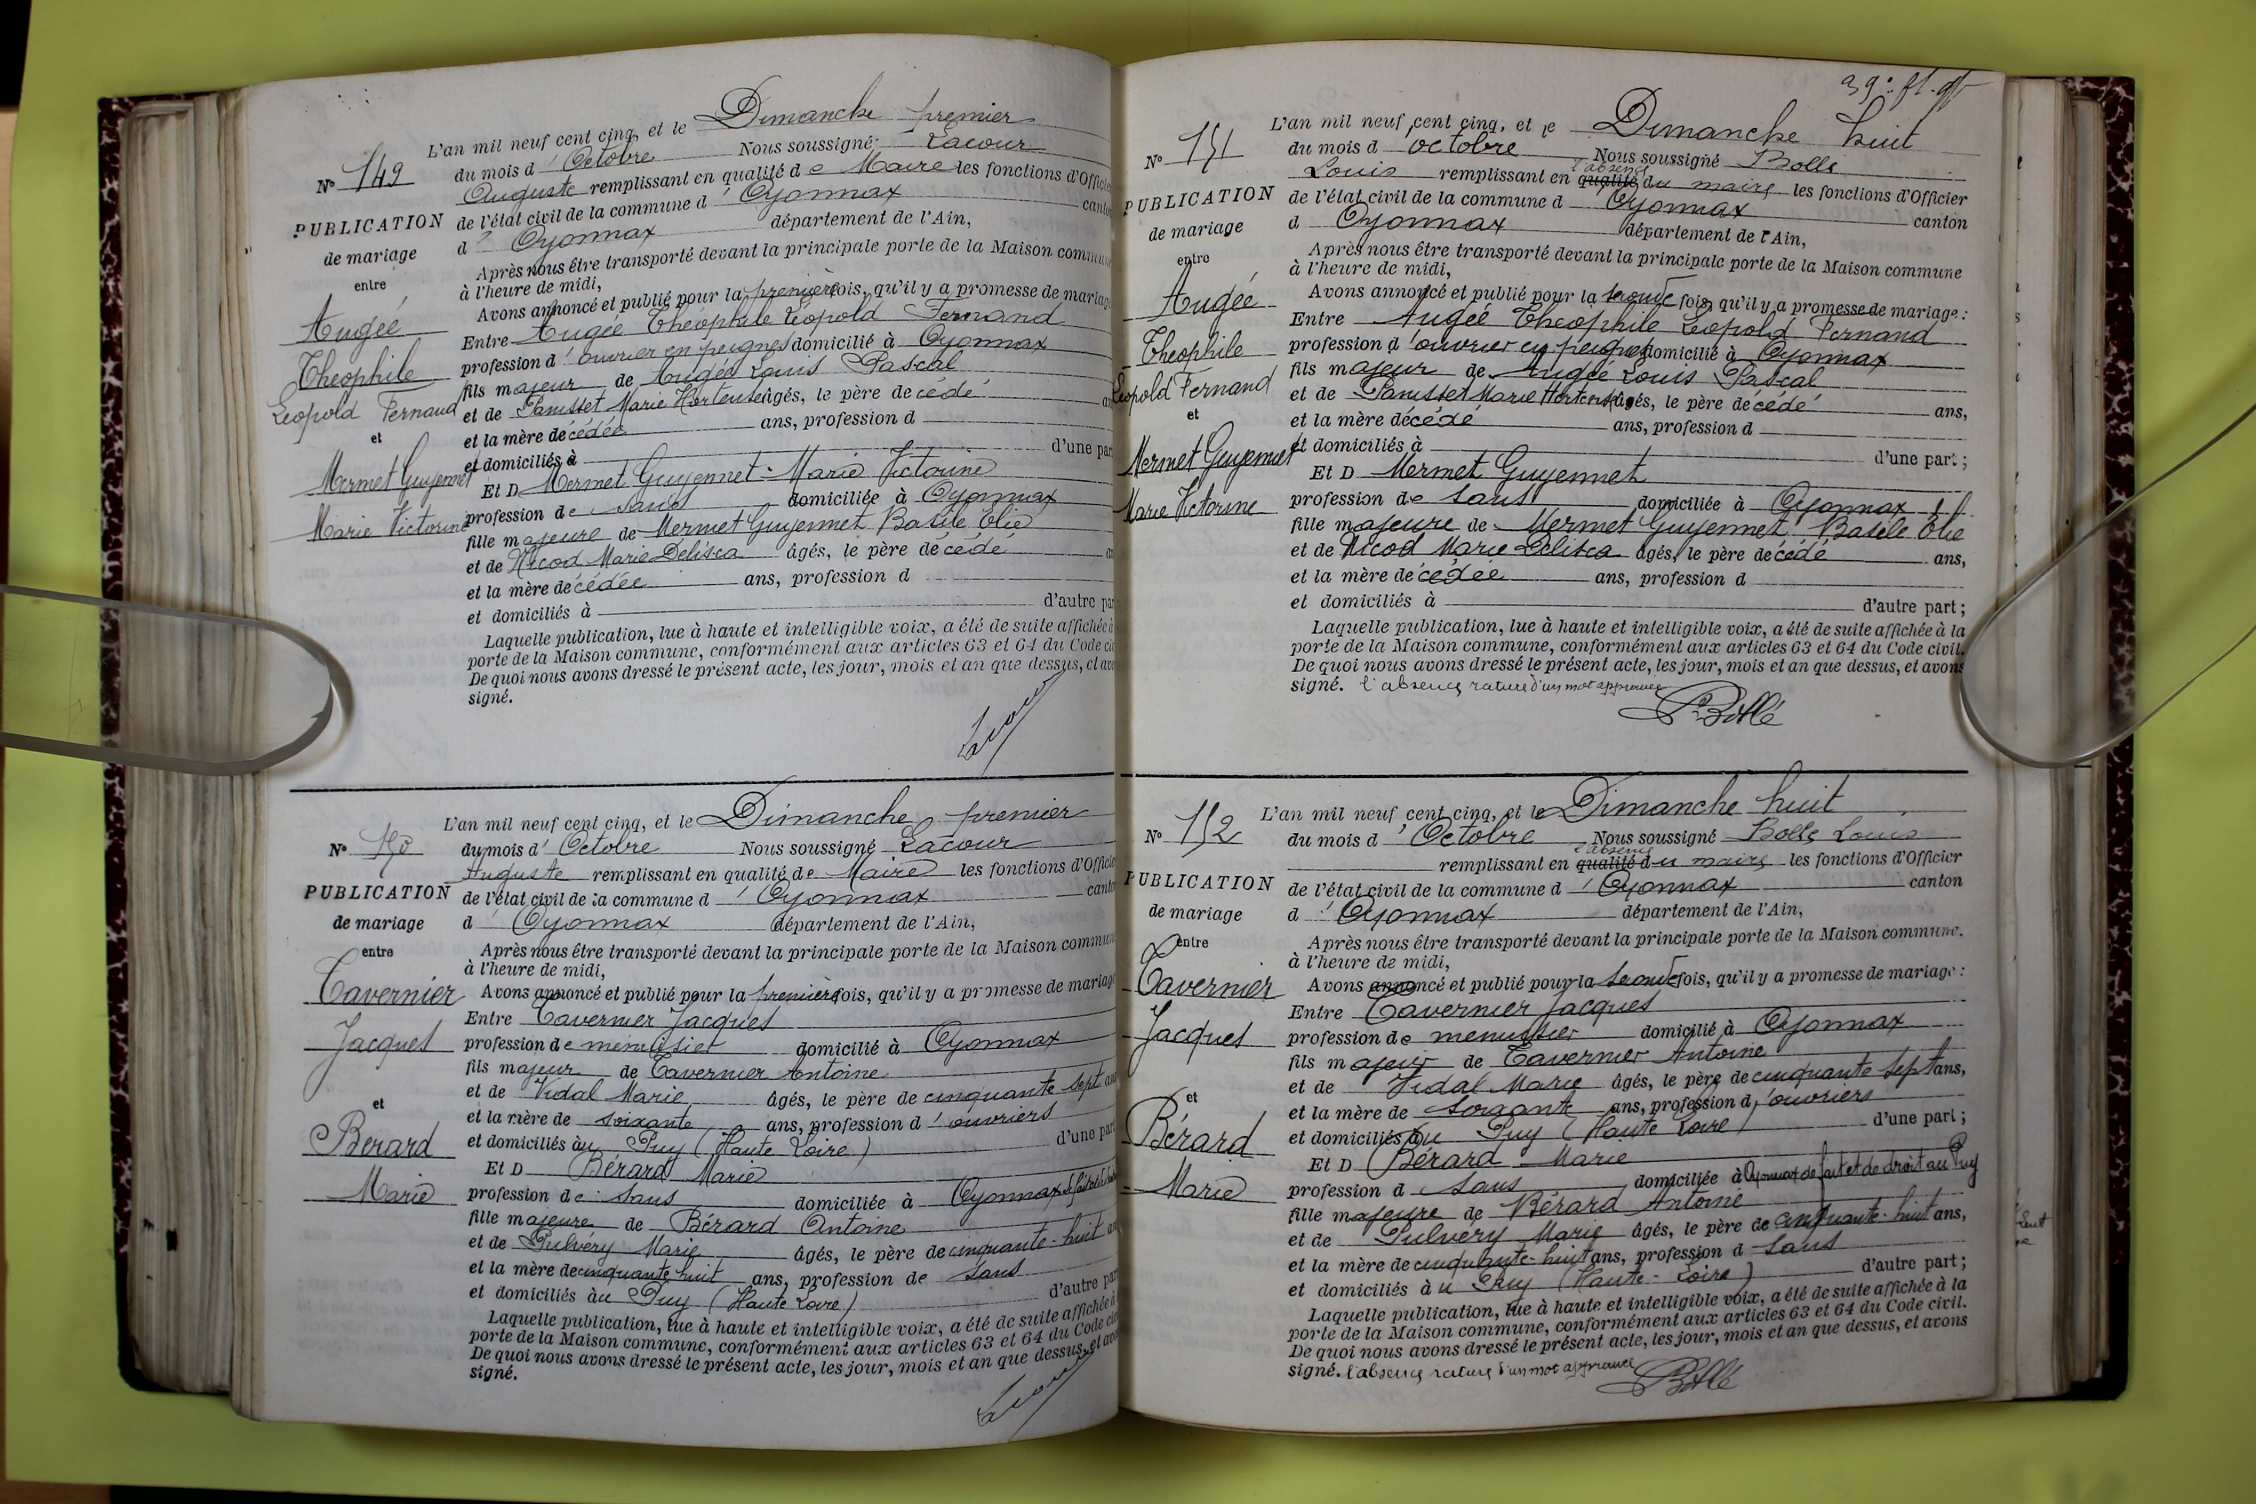 L'an mil neuf cent cinq, et le Dimanche premier
N° 149 du mois d'Octobre Nous soussigné Lacour
Auguste remplissant en qualité de Maire les fonctions d'Officier
PUBLICATION de l'état civil de la commune d'Oyonnax canton
de mariage d'Oyonnax département de l'Ain,
entre Après nous être transporté devant la principale porte de la Maison commune
à l'heure de midi,
Avons annoncé et publié pour la première fois, qu'il y a promesse de mariage
Augée Entre Augée Théophile Léopold Fernand
Théophile profession d'ouvrier en peignes domicilié à Oyonnax
fils majeur de Augée Louis Pascal
Léopold Fernand et de Panisset Marie Hortense âgés, le père décédé ans
et et la mère décédée ans, profession d
et domiciliés à d'une part
Mermet Guyennet Et D Mermet Guyennet Marie Victorine
Marie Victorine profession de sans domiciliée à Oyonnax
fille majeure de Mermet Guyennet Basile Elie
et de Nicod Marie Delisca âgés, le père décédé
et la mère décédée ans, profession d
et domiciliés à d'autre part
Laquelle publication, lue à haute et intelligible voix, a été de suite affichée à
porte de la Maison commune, conformément aux articles 63 et 64 du Code civ
De quoi nous avons dressé le présent acte, les jour, mois et an que dessus, et avo
signé.
Lacour
L'an mil neuf cent cinq, et le Dimanche premier
N° 150 du mois d'Octobre Nous soussigné Lacour
Auguste remplissant en qualité de Maire les fonctions d'Officier
PUBLICATION de l'état civil de la commune d'Oyonnax canton
de mariage d'Oyonnax département de l'Ain,
entre Après nous être transporté devant la principale porte de la Maison commune
à l'heure de midi,
Tavernier Avons annoncé et publié pour la première fois, qu'il y a promesse de mariage
Entre Tavernier Jacques
Jacques profession de menuisier domicilié à Oyonnax
fils majeur de Tavernier Antoine
et de Vidal Marie âgés, le père de cinquante sept ans
et et la mère de soixante ans, profession d'ouvriers
Bérard et domiciliés au Puy (Haute Loire) d'une part
Et D Bérard Marie
Marie profession de sans domiciliée à Oyonnax
fille majeure de Bérard Antoine
et de Pulvéry Marie âgés, le père de cinquante-huit ans
et la mère de cinquante huit ans, profession de sans
et domiciliés au Puy (Haute Loire) d'autre part
Laquelle publication, lue à haute et intelligible voix, a été de suite affichée à
porte de la Maison commune, conformément aux articles 63 et 64 du Code civ
De quoi nous avons dressé le présent acte, les jour, mois et an que dessus, et avo
signé.
Lacour
L'an mil neuf cent cinq, et le Dimanche huit
N° 151 du mois d'octobre Nous soussigné Bollé
l'absence
Louis remplissant en qualité du maire les fonctions d'Officier
PUBLICATION de l'état civil de la commune d Oyonnax canton
de mariage d Oyonnax département de l'Ain,
entre Après nous être transporté devant la principale porte de la Maison commune
à l'heure de midi,
Augée Avons annoncé et publié pour la seconde fois, qu'il y a promesse de mariage :
Entre Augée Théophile Léopold Fernand
Théophile profession d'ouvrier en peignes domicilié à Oyonnax
fils majeur de Augée Louis Pascal
Léopold Fernand et de Panisset Marie Hortense âgés, le père décédé ans,
et et la mère décédé ans, profession d
Mermet Guyennet et domiciliés à d'une part ;
Et D Mermet Guyennet
Marie Victorine profession de sans domiciliée à Oyonnax
fille majeure de Mermet Guyennet Basile Elie
et de Nicod Marie Delisca âgés, le père décédé ans,
et la mère décédée ans, profession d
et domiciliés à d'autre part ;
Laquelle publication, lue à haute et intelligible voix, a été de suite affichée à la
porte de la Maison commune, conformément aux articles 63 et 64 du Code civil.
De quoi nous avons dressé le présent acte, les jour, mois et an que dessus, et avons
signé. l'absence rature d'un mot approuvée
Bollé
L'an mil neuf cent cinq, et le Dimanche huit
N° 152 du mois d'Octobre Nous soussigné Bollé Louis
l'absence
remplissant en qualité du maire les fonctions d'Officier
PUBLICATION de l'état civil de la commune d'Oyonnax canton
de mariage d'Oyonnax département de l'Ain,
entre Après nous être transporté devant la principale porte de la Maison commune.
à l'heure de midi,
Tavernier Avons annoncé et publié pour la seconde fois, qu'il y a promesse de mariage :
Entre Tavernier Jacques
Jacques profession de menuisier domicilié à Oyonnax
fils majeur de Tavernier Antoine
et de Vidal Marie âgés, le père de cinquante sept ans,
et et la mère de soixante ans, profession d'ouvriers
Bérard et domiciliés au Puy (Haute Loire) d'une part ;
Et D Bérard Marie
Marie profession d sans domiciliée à Oyonnax de fait et de droit au Puy
fille majeure de Bérard Antoine
et de Pulvéry Marie âgés, le père de cinquante-huit ans,
et la mère de cinquante-huit ans, profession d sans
et domiciliés au Puy (Haute-Loire) d'autre part ;
Laquelle publication, lue à haute et intelligible voix, a été de suite affichée à la
porte de la Maison commune, conformément aux articles 63 et 64 du Code civil.
De quoi nous avons dressé le présent acte, les jour, mois et an que dessus, et avons
signé. l'absence rature d'un mot approuvée
Bollé